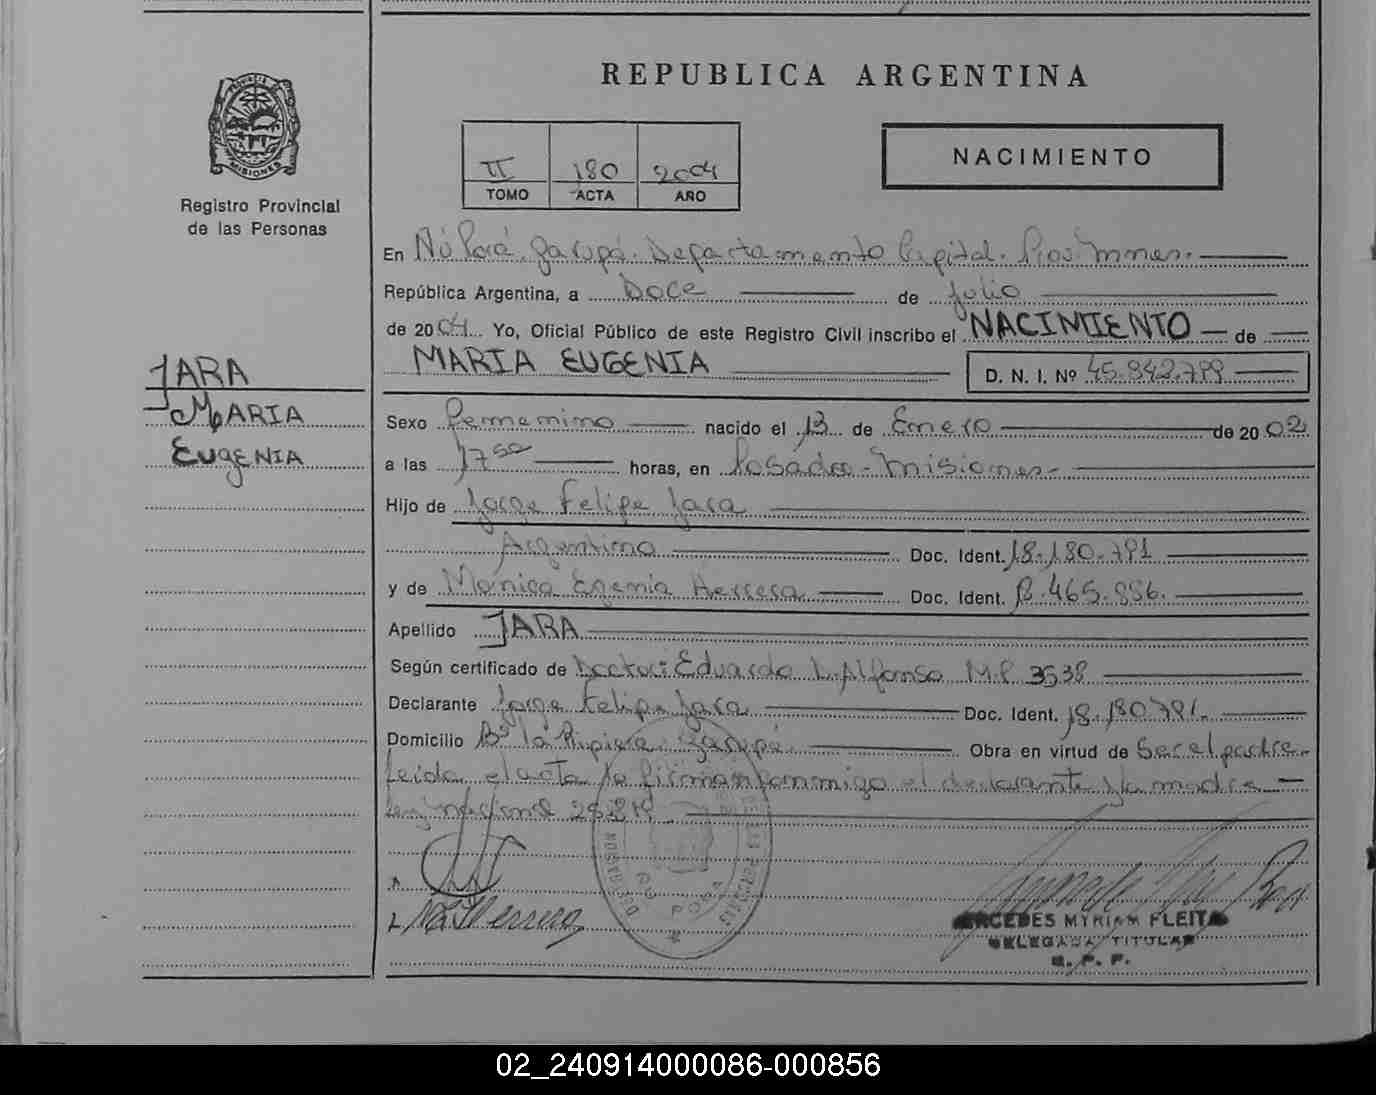 REPUBLICA ARGENTINA
PROVINCIA DE MISIONES
Registro Provincial
de las Personas
II 180 2004
TOMO ACTA AÑO
NACIMIENTO
En Ñú Porá. Garupá. Departamento Capital.
República Argentina, a Doce de Julio
de 2004 Yo, Oficial Público de este Registro Civil inscribo el NACIMIENTO de
MARIA EUGENIA D. N. I. Nº
JARA
MARIA
EUGENIA
Sexo Femenino nacido el 13 de Enero de 2002
a las 17 horas, en Posadas - Misiones -
Hijo de Jorge Felipe Jara
Argentino Doc. Ident. 18.180.791
y de Monica Egenia Herrera Doc. Ident.
Apellido JARA
Según certificado de Doctor: Eduardo L. Alfonso M.P. 3538
Declarante Jorge Felipe Jara Doc. Ident. 18.180791.
Domicilio Bº la Ripiera Garupá. Obra en virtud de Ser el padre.
leida el acta la firman conmigo el declarante y la madre
ley nacional
Herrera
MERCEDES MYRIAM FLEITA
DELEGADA TITULAR
R. P. P.
02_240914000086-000856